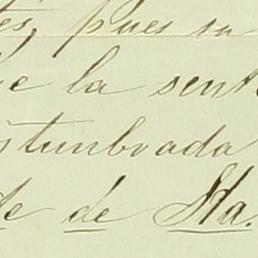 és, pues su
e la sent
stunbrada
de de Sta.